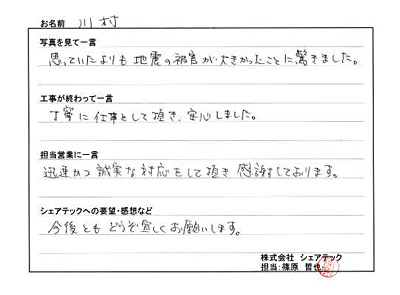 お名前 川村
写真を見て一言
思っていたよりも地震の被害が大きかったことに驚きました。
工事が終わって一言
丁寧に仕事をして頂き、安心しました。
担当営業に一言
迅速かつ誠実な対応をして頂き感謝しております。
シェアテックへの要望・感想など
今後ともどうぞ宜しくお願いします。
株式会社 シェアテック
担当:篠原 哲也